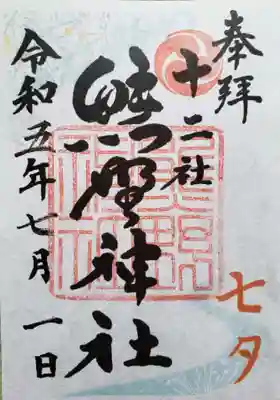 奉拝
十二社
熊野神社
七夕
令和五年七月一日